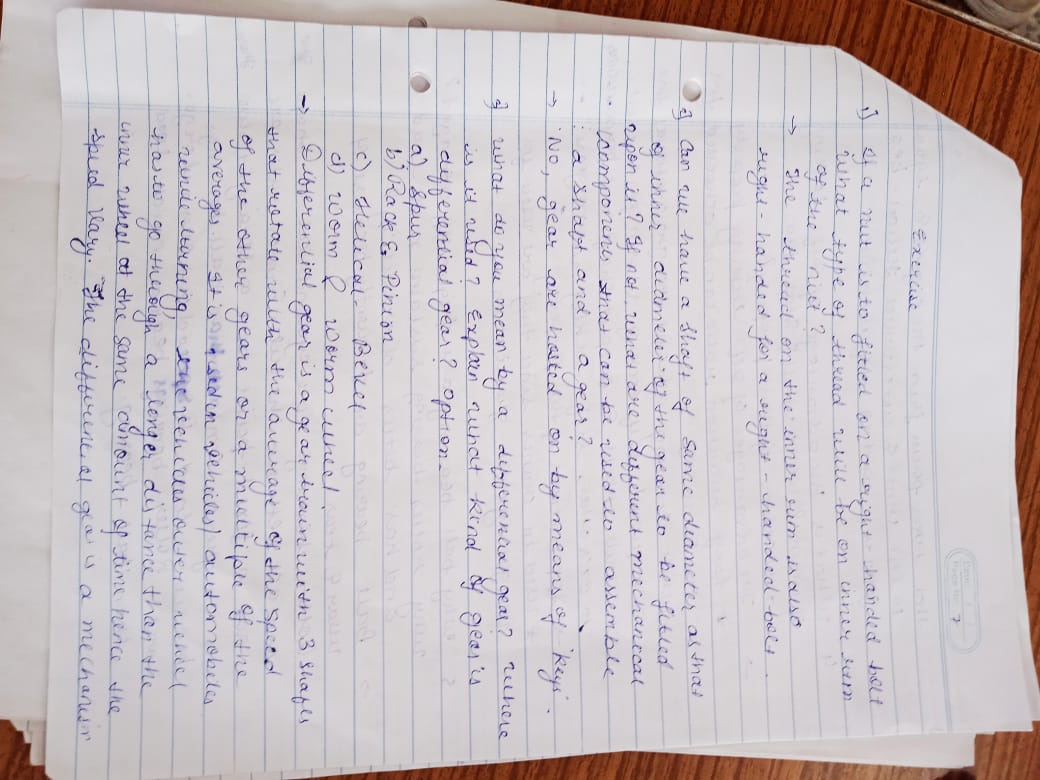 7
Exercise
1) If a nut is to fitted on a right-handed bolt
what type of thread will be on inner rum
of the nut?
→ The thread on the inner rum is also
right-handed for a right-handed-bolt.
2) Can we have a shaft of same diameter as that
of inner diameter of the gear to be fitted
upon it? If not what are different mechanical
components that can be used to assemble
a shaft and a gear?
→ 'No, gear are hosted on by means of 'keys'.
3) what do you mean by a differential gear? where
is it used? Explain what kind of gear is
differential gear? option
a) Spur
b) Rack & Pinion
c) Helical Bevel
d) worm & worm wheel
→ Differential gear is a gear train with 3 shafts
that rotate with the average of the speed
of the other gears or a multiple of the
averages. It is used in vehicles/automobiles
while turning, the outer wheel
has to go through a longer distance than the
inner wheel at the same amount of time hence the
speed vary. The differential gear is a mechanism